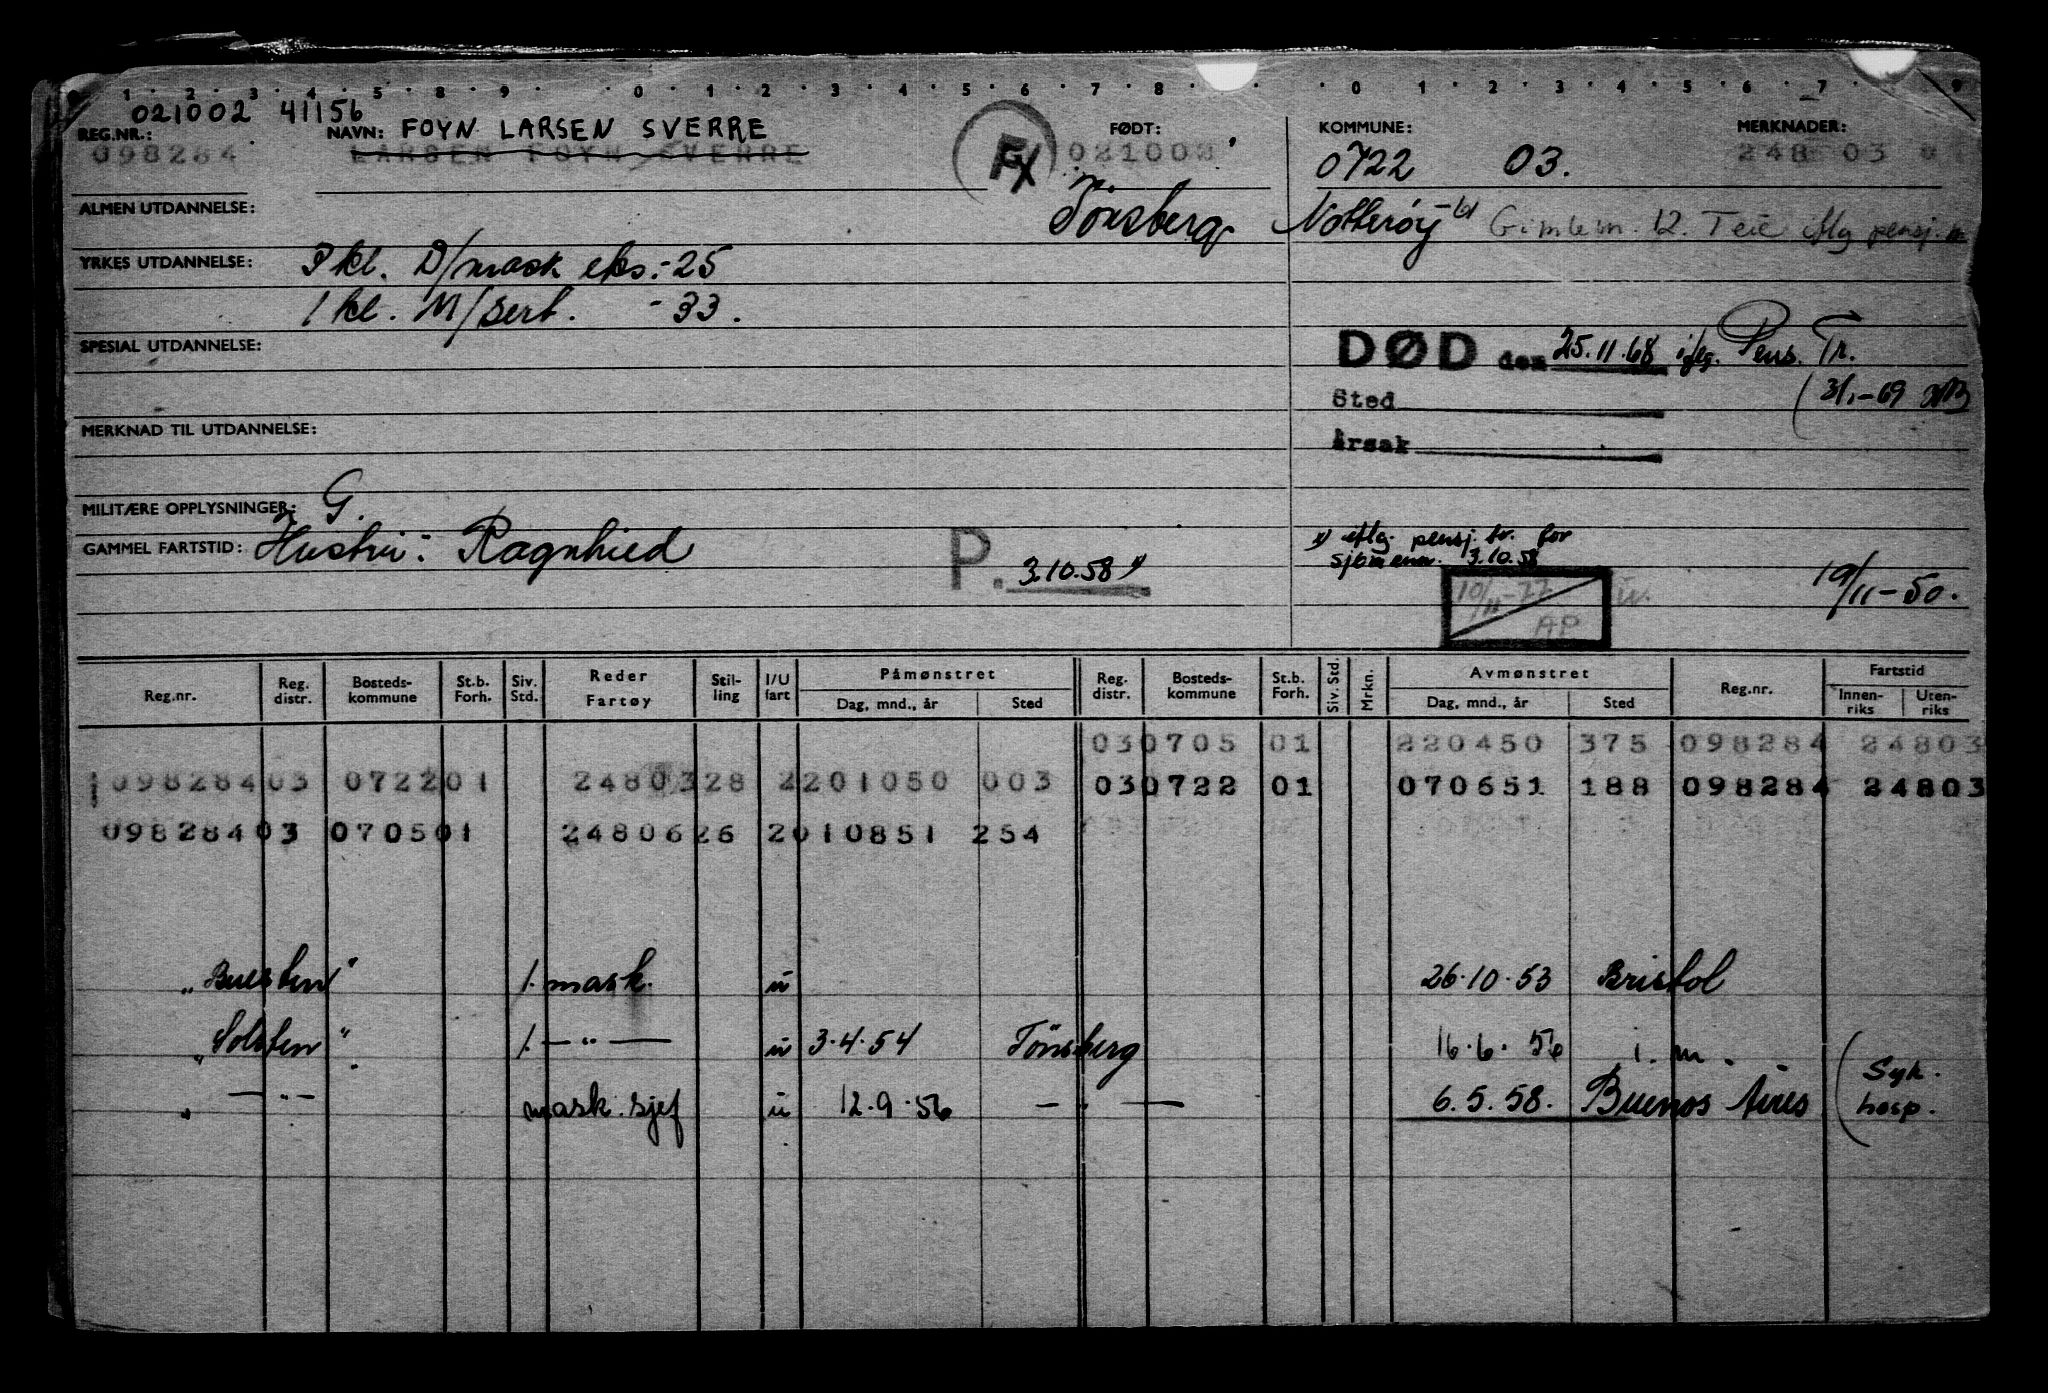 1 2 3 4 5 8 9 0 1 2 3 4 5 6 7 8 0 1 2 3 4 5 6 7 9
021002 41156
REG.NR.: NAVN: FOYN LARSEN SVERRE FØDT: KOMMUNE: MERKNADER:
098284 LARSEN FOYN SVERRE 021002 0722 03. 248 03
ALMEN UTDANNELSE: Tönsberg Nøtterøy Gimlevn. 12. Teie iflg pensj.
YRKES UTDANNELSE: 2 kl. D/mask eks. -25
1 kl. M/sert. -33.
SPESIAL UTDANNELSE: DØD den 25.11.68 iflg. Pens. Tr.
Sted (3/1-69
MERKNAD TIL UTDANNELSE: Årsak
MILITÆRE OPPLYSNINGER: G.
GAMMEL FARTSTID: Hustru: Ragnhild P. 3.10.58 x) x) iflg. pensj. tr. for
sjömenn. 3.10.58
10/11-77 19/11-50.
AP
Reg.nr. Reg. distr. Bosteds-kommune St.b. Forh. Siv. Std. Reder Fartøy Stil-ling I/U fart Påmønstret Dag, mnd., år Sted Reg. distr. Bosteds-kommune St.b. Forh. Siv. Std. Mrkn. Avmønstret Dag, mnd., år Sted Reg.nr. Fartstid Innen-riks Uten-riks
030705 01 220450 375 098284 24803
09828403 072201 2480328 2201050 003 030722 01 070651 188 098284 24803
09828403 070501 2480626 2010851 254
1. mask. u 26.10.53 Bristol
"Solsten" 1. — " — u 3.4.54 Tönsberg 16.6.56 i.m.
" — " — mask.sjef u 12.9.56 — " — 6.5.58. Buenos Aires (Syk.
hosp.